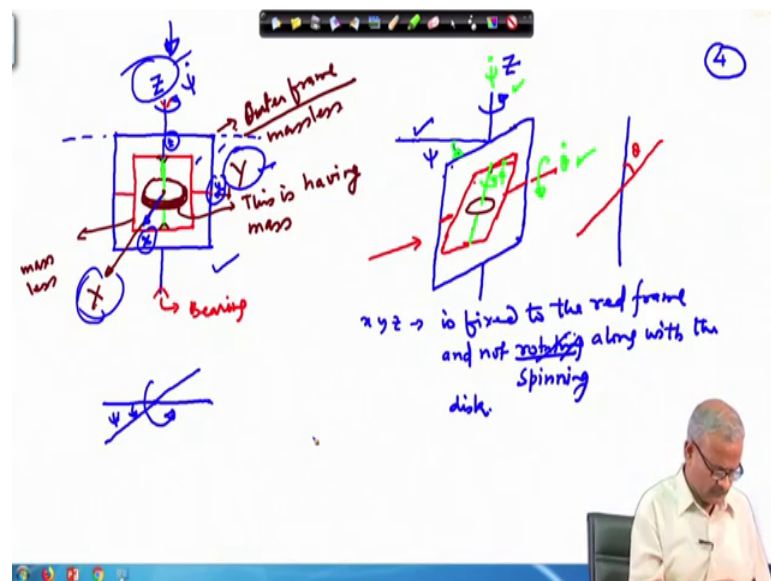 4
Z ψ̇
Outer frame
massless
z
y
Y
This is having
mass
x
mass
less
X
Bearing
ψ
ψ̇ Z
ψ
θ̇
θ
x y z → is fixed to the red frame
and not rotating along with the
spinning
disk.